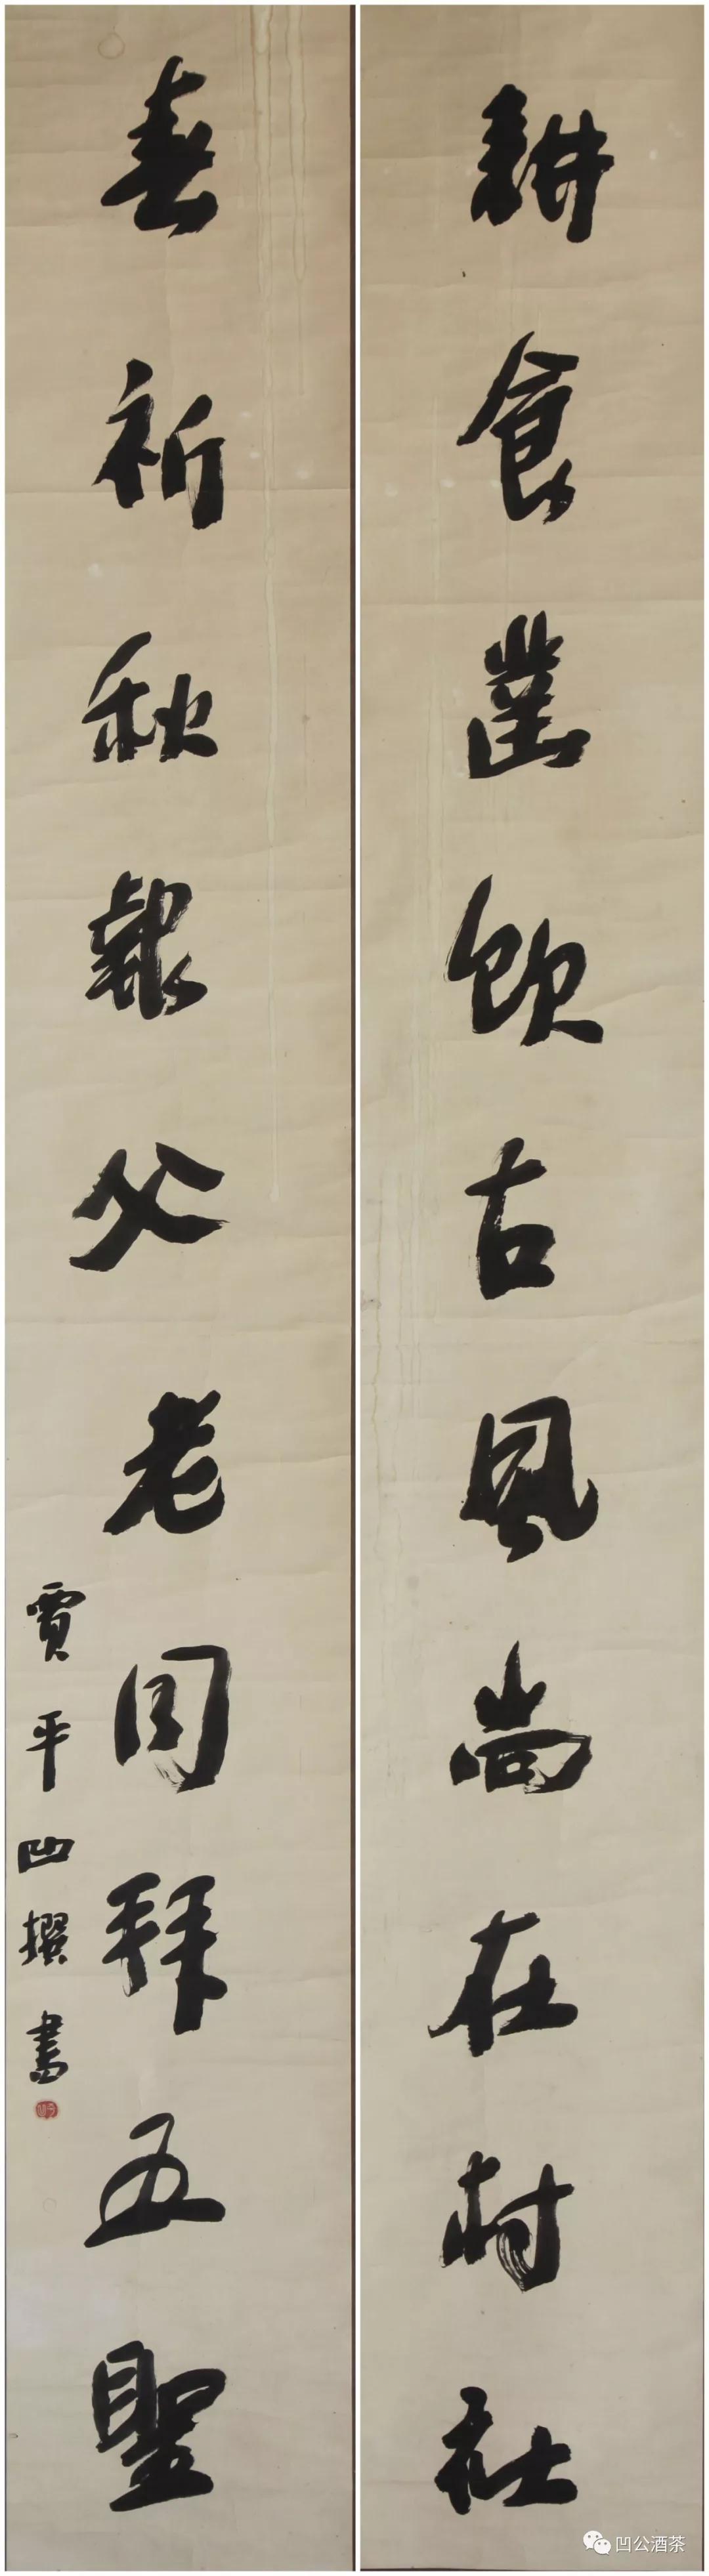 耕食凿飲古風尚在村社
春祈秋報父老同拜五聖
賈平凹撰書
凹公酒茶